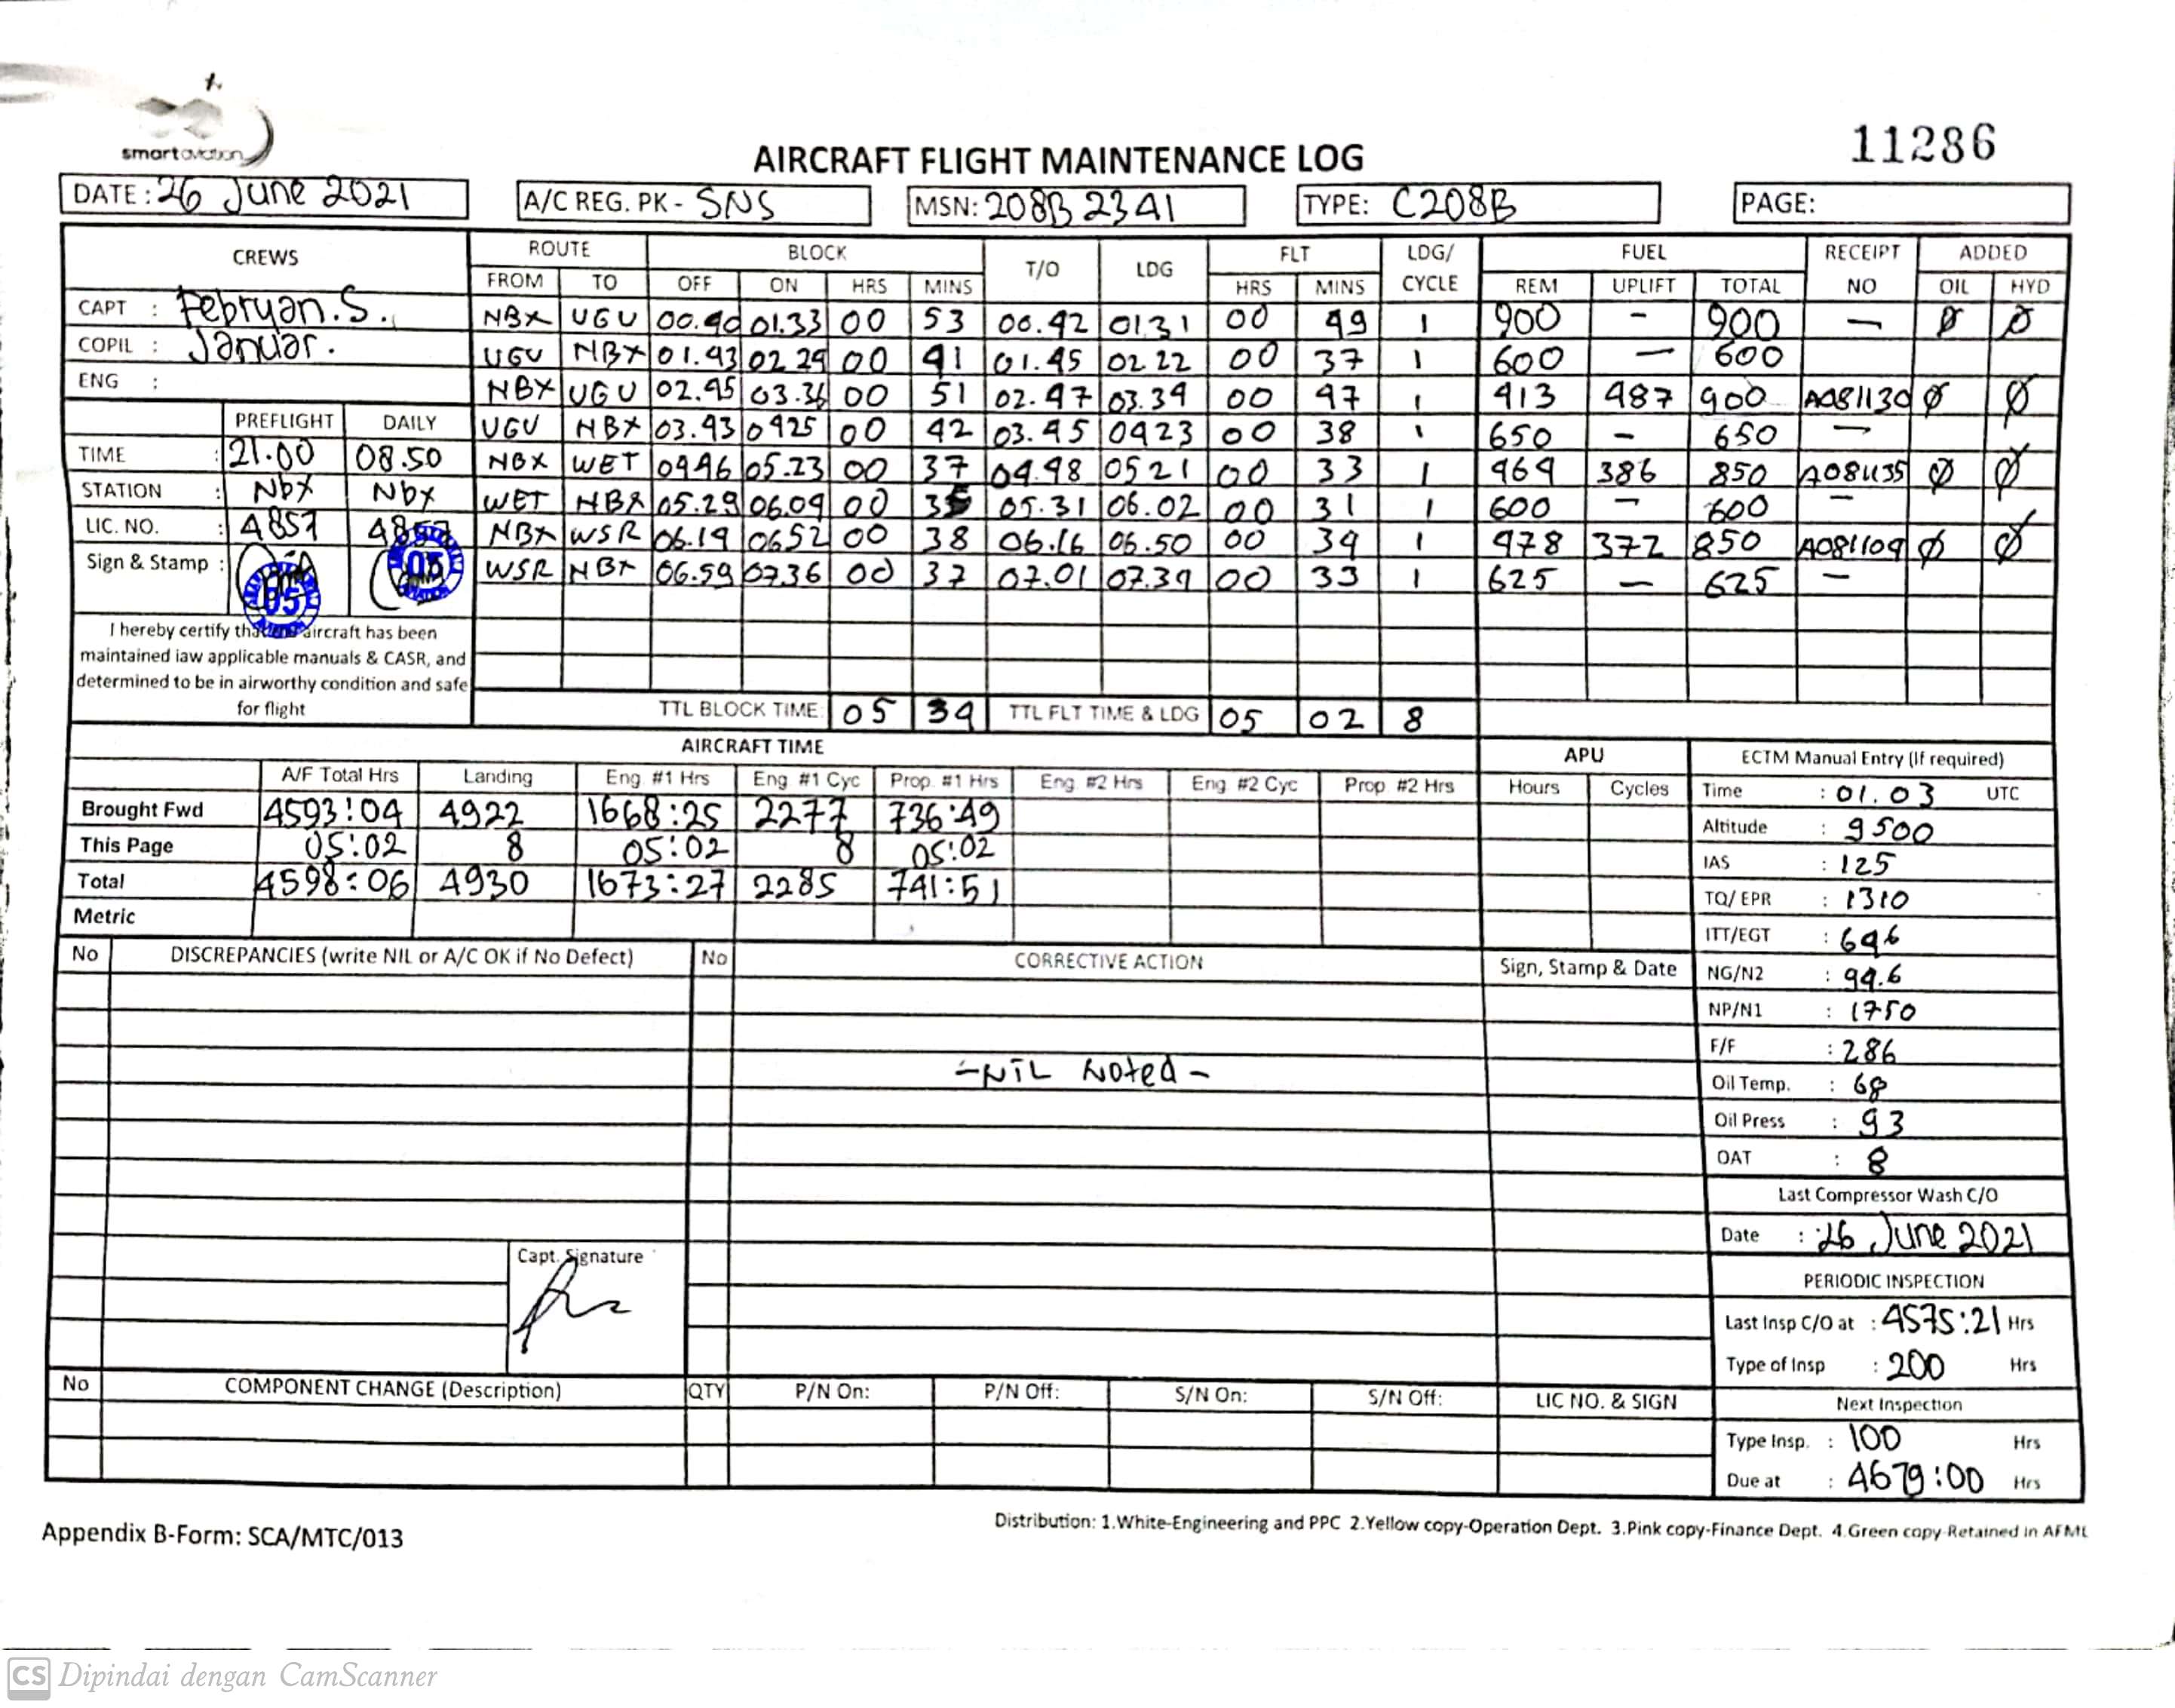 smart aviation
11286
AIRCRAFT FLIGHT MAINTENANCE LOG
DATE : 26 June 2021 A/C REG. PK - SNS MSN: 208B 2341 TYPE: C208B PAGE:
CREWS ROUTE BLOCK T/O LDG FLT LDG/ CYCLE FUEL RECEIPT NO ADDED
FROM TO OFF ON HRS MINS HRS MINS REM UPLIFT TOTAL OIL HYD
CAPT : Febryan.S.
COPIL : Januar.
ENG :
NBX UGU 00.40 01.33 00 53 00.42 01.31 00 49 1 900 - 900 - Ø Ø
UGU NBX 01.43 02.24 00 41 01.45 02.22 00 37 1 600 - 600
NBX UGU 02.45 03.36 00 51 02.47 03.34 00 47 1 413 487 900 A081130 Ø Ø
UGU NBX 03.43 0425 00 42 03.45 0423 00 38 1 650 - 650 -
NBX WET 0446 05.23 00 37 04.48 0521 00 33 1 464 386 850 A081135 Ø Ø
WET NBX 05.29 06.04 00 35 05.31 06.02 00 31 1 600 - 600 -
NBX WSR 06.14 0652 00 38 06.16 06.50 00 34 1 478 372 850 A081109 Ø Ø
WSR NBX 06.59 0736 00 37 07.01 07.34 00 33 1 625 - 625 -
PREFLIGHT DAILY
TIME : 21.00 08.50
STATION : Nbx Nbx
LIC. NO. : 4857 4857
Sign & Stamp :
05 05
I hereby certify that the aircraft has been
maintained iaw applicable manuals & CASR, and
determined to be in airworthy condition and safe
for flight
TTL BLOCK TIME: 05 34 TTL FLT TIME & LDG 05 02 8
AIRCRAFT TIME APU ECTM Manual Entry (If required)
A/F Total Hrs Landing Eng #1 Hrs Eng #1 Cyc Prop. #1 Hrs Eng #2 Hrs Eng #2 Cyc Prop #2 Hrs Hours Cycles
Brought Fwd 4593:04 4922 1668:25 2277 736:49
This Page 05:02 8 05:02 8 05:02
Total 4598:06 4930 1673:27 2285 741:51
Metric
Time : 01.03 UTC
Altitude : 9500
IAS : 125
TQ/ EPR : 1310
ITT/EGT : 646
NG/N2 : 94.6
NP/N1 : 1750
F/F : 286
Oil Temp. : 68
Oil Press : 93
OAT : 8
Last Compressor Wash C/O
Date : 26 June 2021
PERIODIC INSPECTION
Last Insp C/O at : 4575:21 Hrs
Type of Insp : 200 Hrs
Next Inspection
Type Insp. : 100 Hrs
Due at : 4679:00 Hrs
No DISCREPANCIES (write NIL or A/C OK if No Defect) No CORRECTIVE ACTION Sign, Stamp & Date
- NIL Noted -
Capt. Signature
No COMPONENT CHANGE (Description) QTY P/N On: P/N Off: S/N On: S/N Off: LIC NO. & SIGN
Appendix B-Form: SCA/MTC/013
Distribution: 1.White-Engineering and PPC 2.Yellow copy-Operation Dept. 3.Pink copy-Finance Dept. 4.Green copy-Retained in AFML
CS Dipindai dengan CamScanner